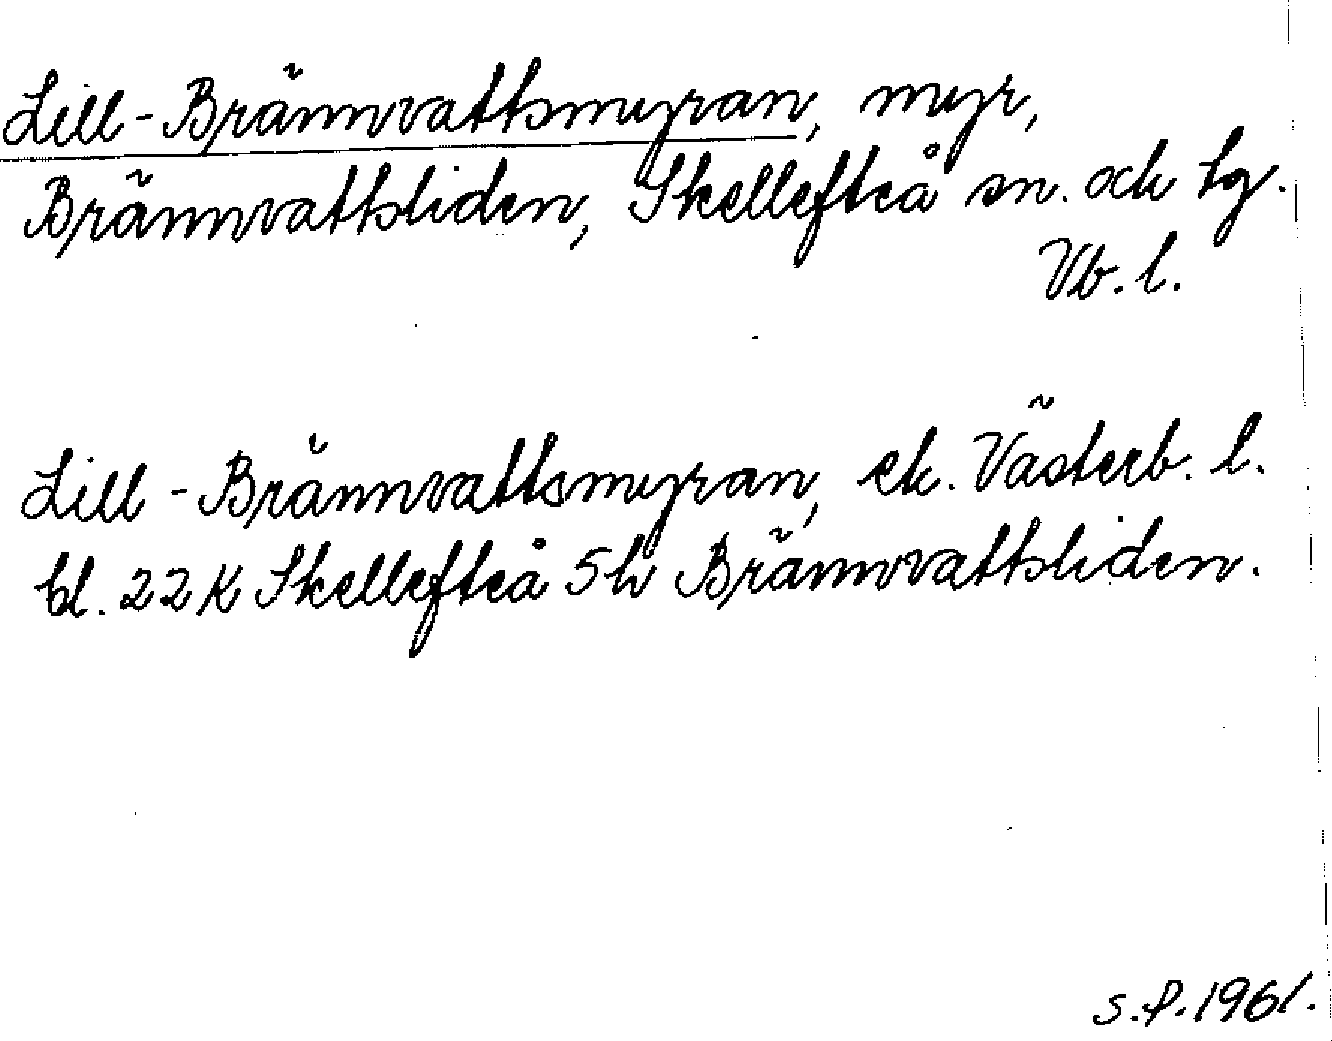 Lill-Brännvattsmyran, myr,
Brännvattsliden, Skellefteå sn. och tg.
Vb. l.
Lill-Brännvattsmyran, ek. Västerb. l.
bl. 22K Skellefteå 5h Brännvattsliden.
S.P. 1961.